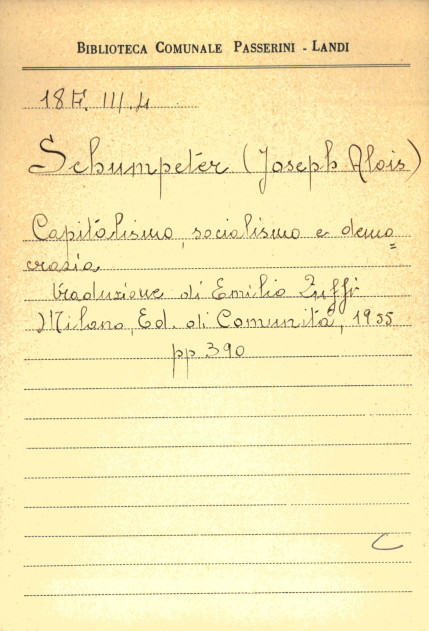 BIBLIOTECA COMUNALE PASSERINI - LANDI
18 F. III. 4
Schumpeter (Joseph Alois)
Capitalismo, socialismo e demo=
crazia
traduzione di Emilio Zuffi
Milano, Ed. di Comunità, 1955
pp 390
C